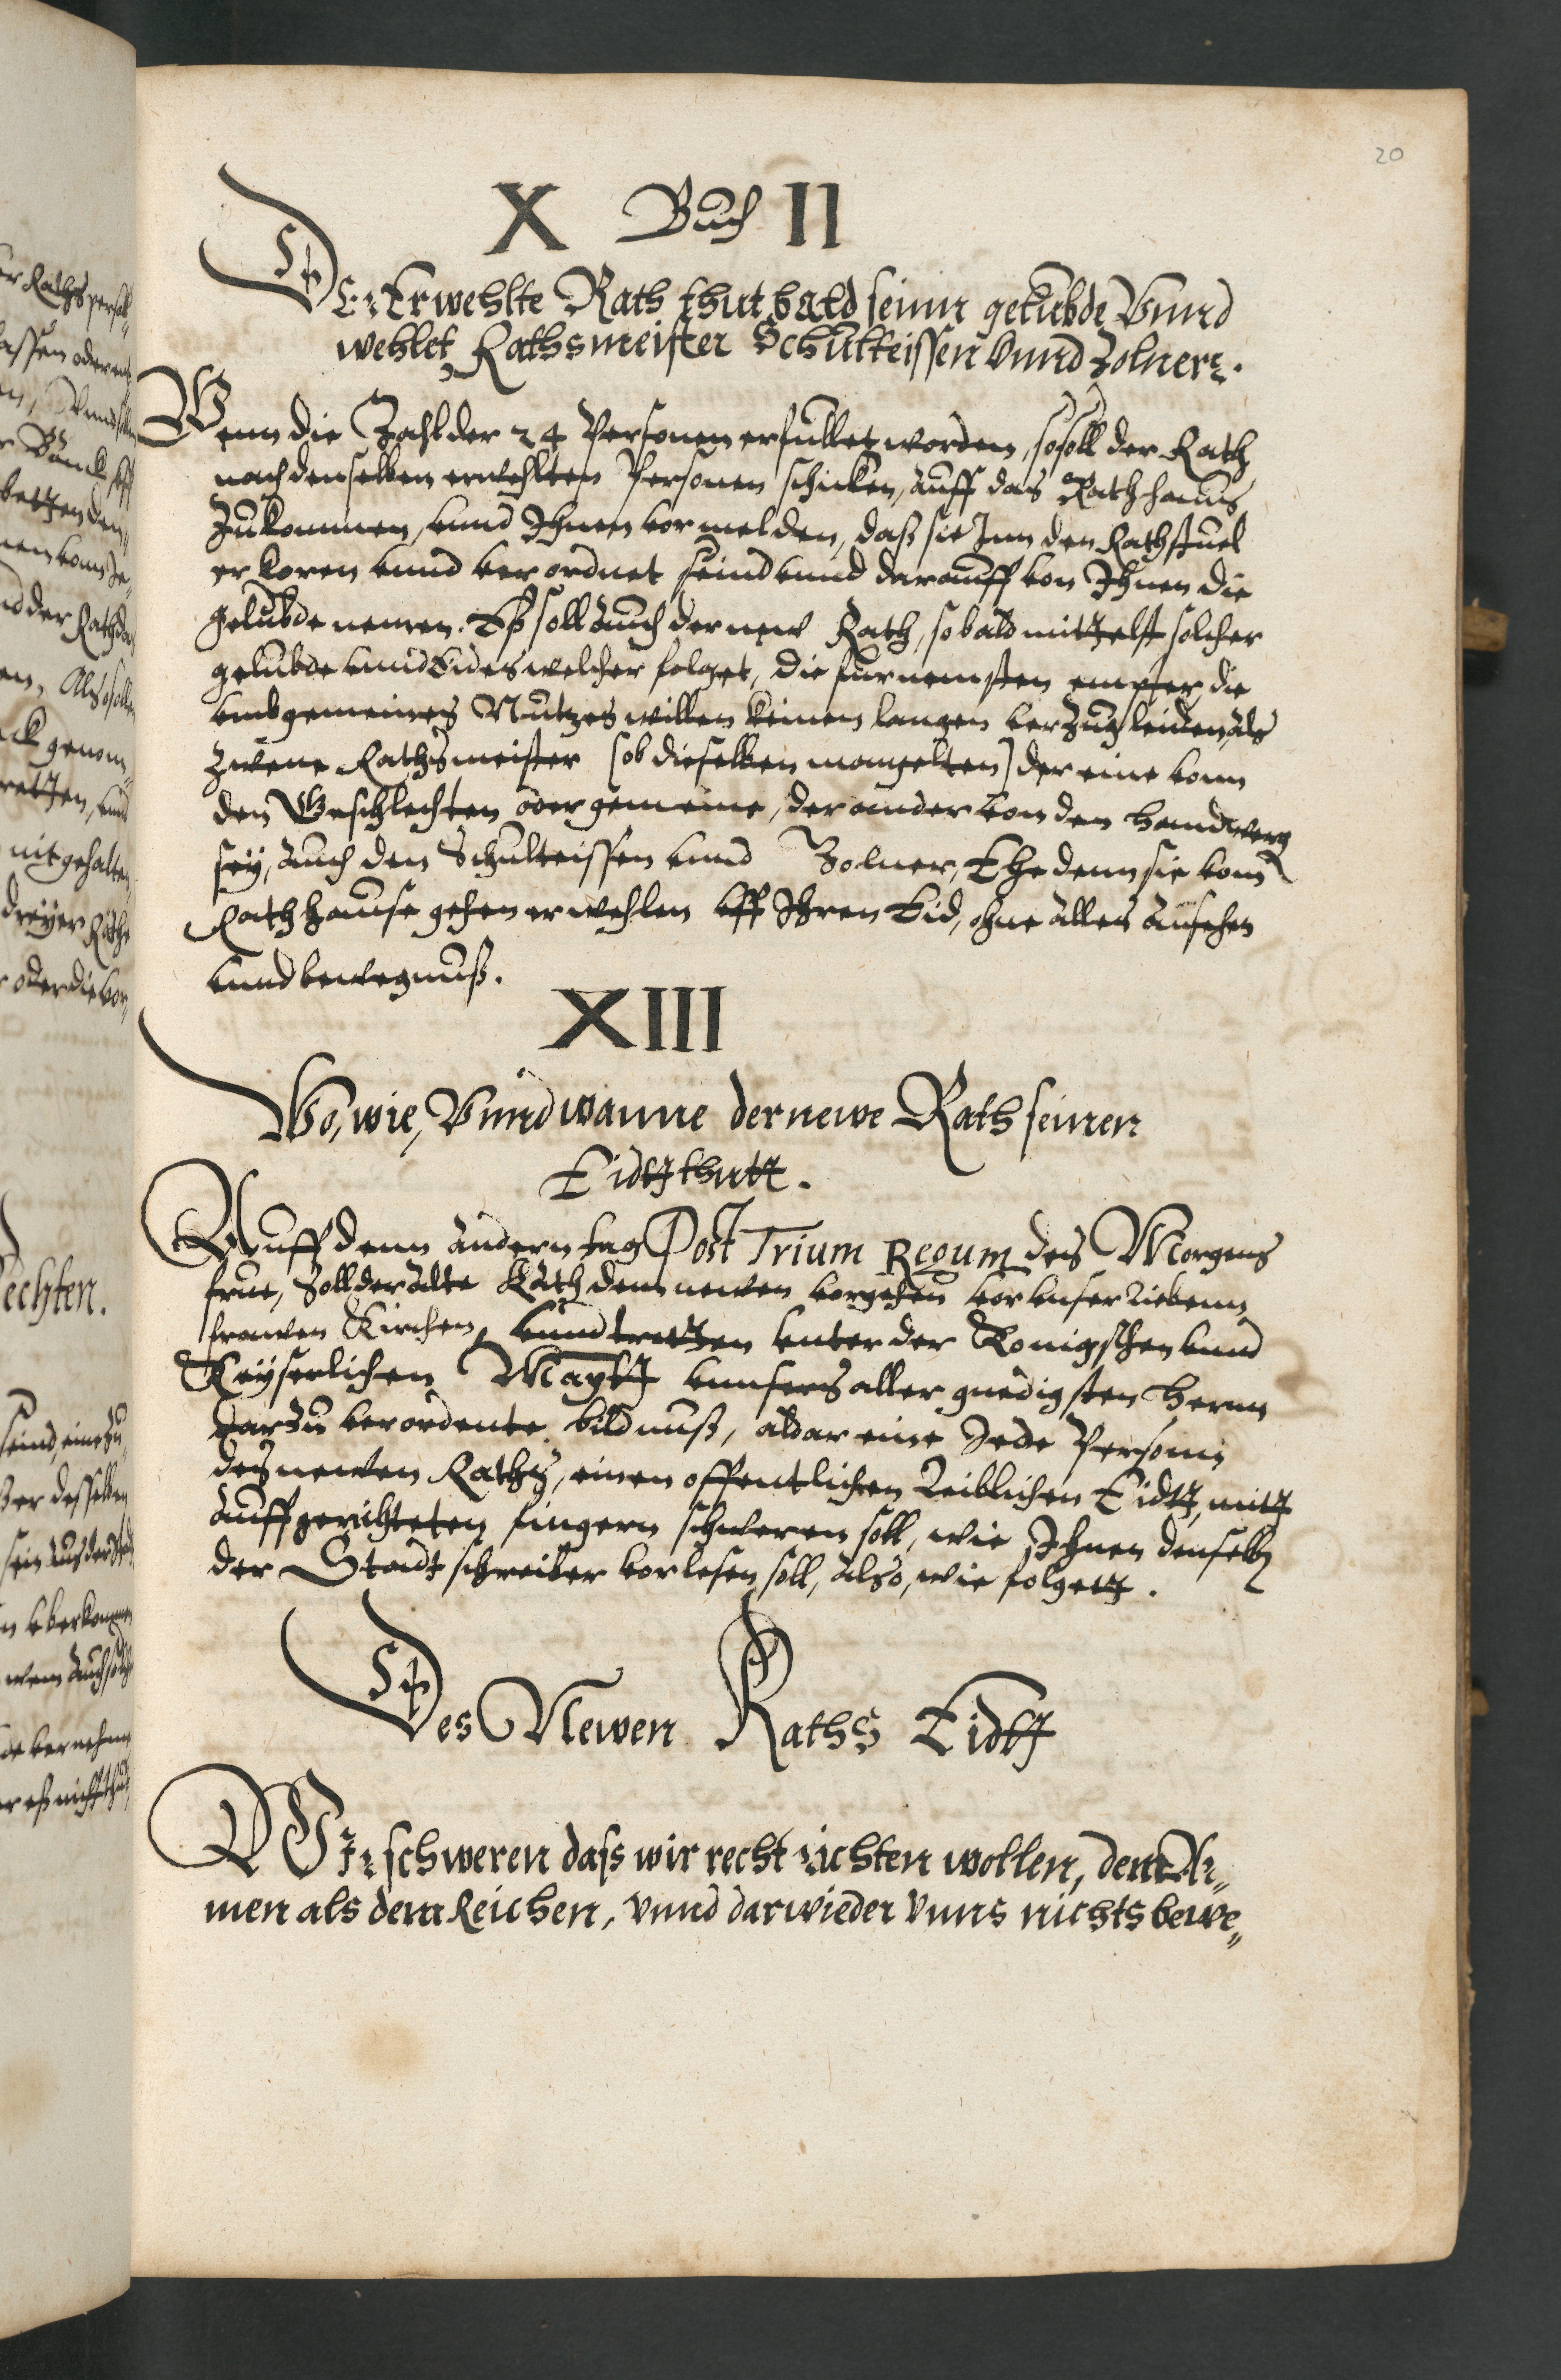 20
X Buch II
DEr Erwehlte Rath thut bald seinn gelubde Vnnd
wehlet Rathsmeister Schultteissen vnnd Zolnerr.
Wenn die Zahl der 24 Personen erfullet worden, so soll der Rath
nach denselben erwehlten Personen schicken, auff das Rathhauß
zukommen, vnnd Ihnen vormelden, daß sie Inn den Rathstuel
erkoren vnnd verordnet seind vnnd darauff von Ihnen die
gelubde nemen. Eß soll auch der new Rath, so bald mittelst solcher
gelubde vnnd Eides welcher folget, die furnemsten empter, die
vmb gemeines Nutzes willen keinen langen verzug leiden, als
zwene Rathsmeister (ob dieselben mangelten) der eine vonn
den Geschlechten oder gemeine, der ander von den handtwerg
sey, auch den Schulteissen vnnd Zolner, Ehe denn sie vom
Rathhause gehen erwehlen vff Ihren Eid, ohne alles ansehen
vnnd bewegnuß.
XIII
Wo, wie, Vnnd wanne der newe Rath seinen
Eidtt thutt.
Auff denn andern tag Post Trium Regum des Morgens
frue, soll der alte Rath dem newen vorgehen vor vnser liebenn
frawen Kirchen, vnnd tretten vnter der Konigschen vnnd
Keyserlichen Maytt vnnsers aller gnedigsten herrn
darzu verordente bildnuß, aldar eine Jede Personn
des newen Raths, einen offentlichen Leiblichen Eidtt, mitt
auffgerichteten fingern schweren soll, wie Ihnen denselben
der Stadtschreiber vorlesen soll, also, wie folgett.
Des Newen Raths Eidtt
WIr schweren daß wir recht richten wollen, dem Ar„
men als dem Reichen, vnnd darwieder vnns nichts bewe„